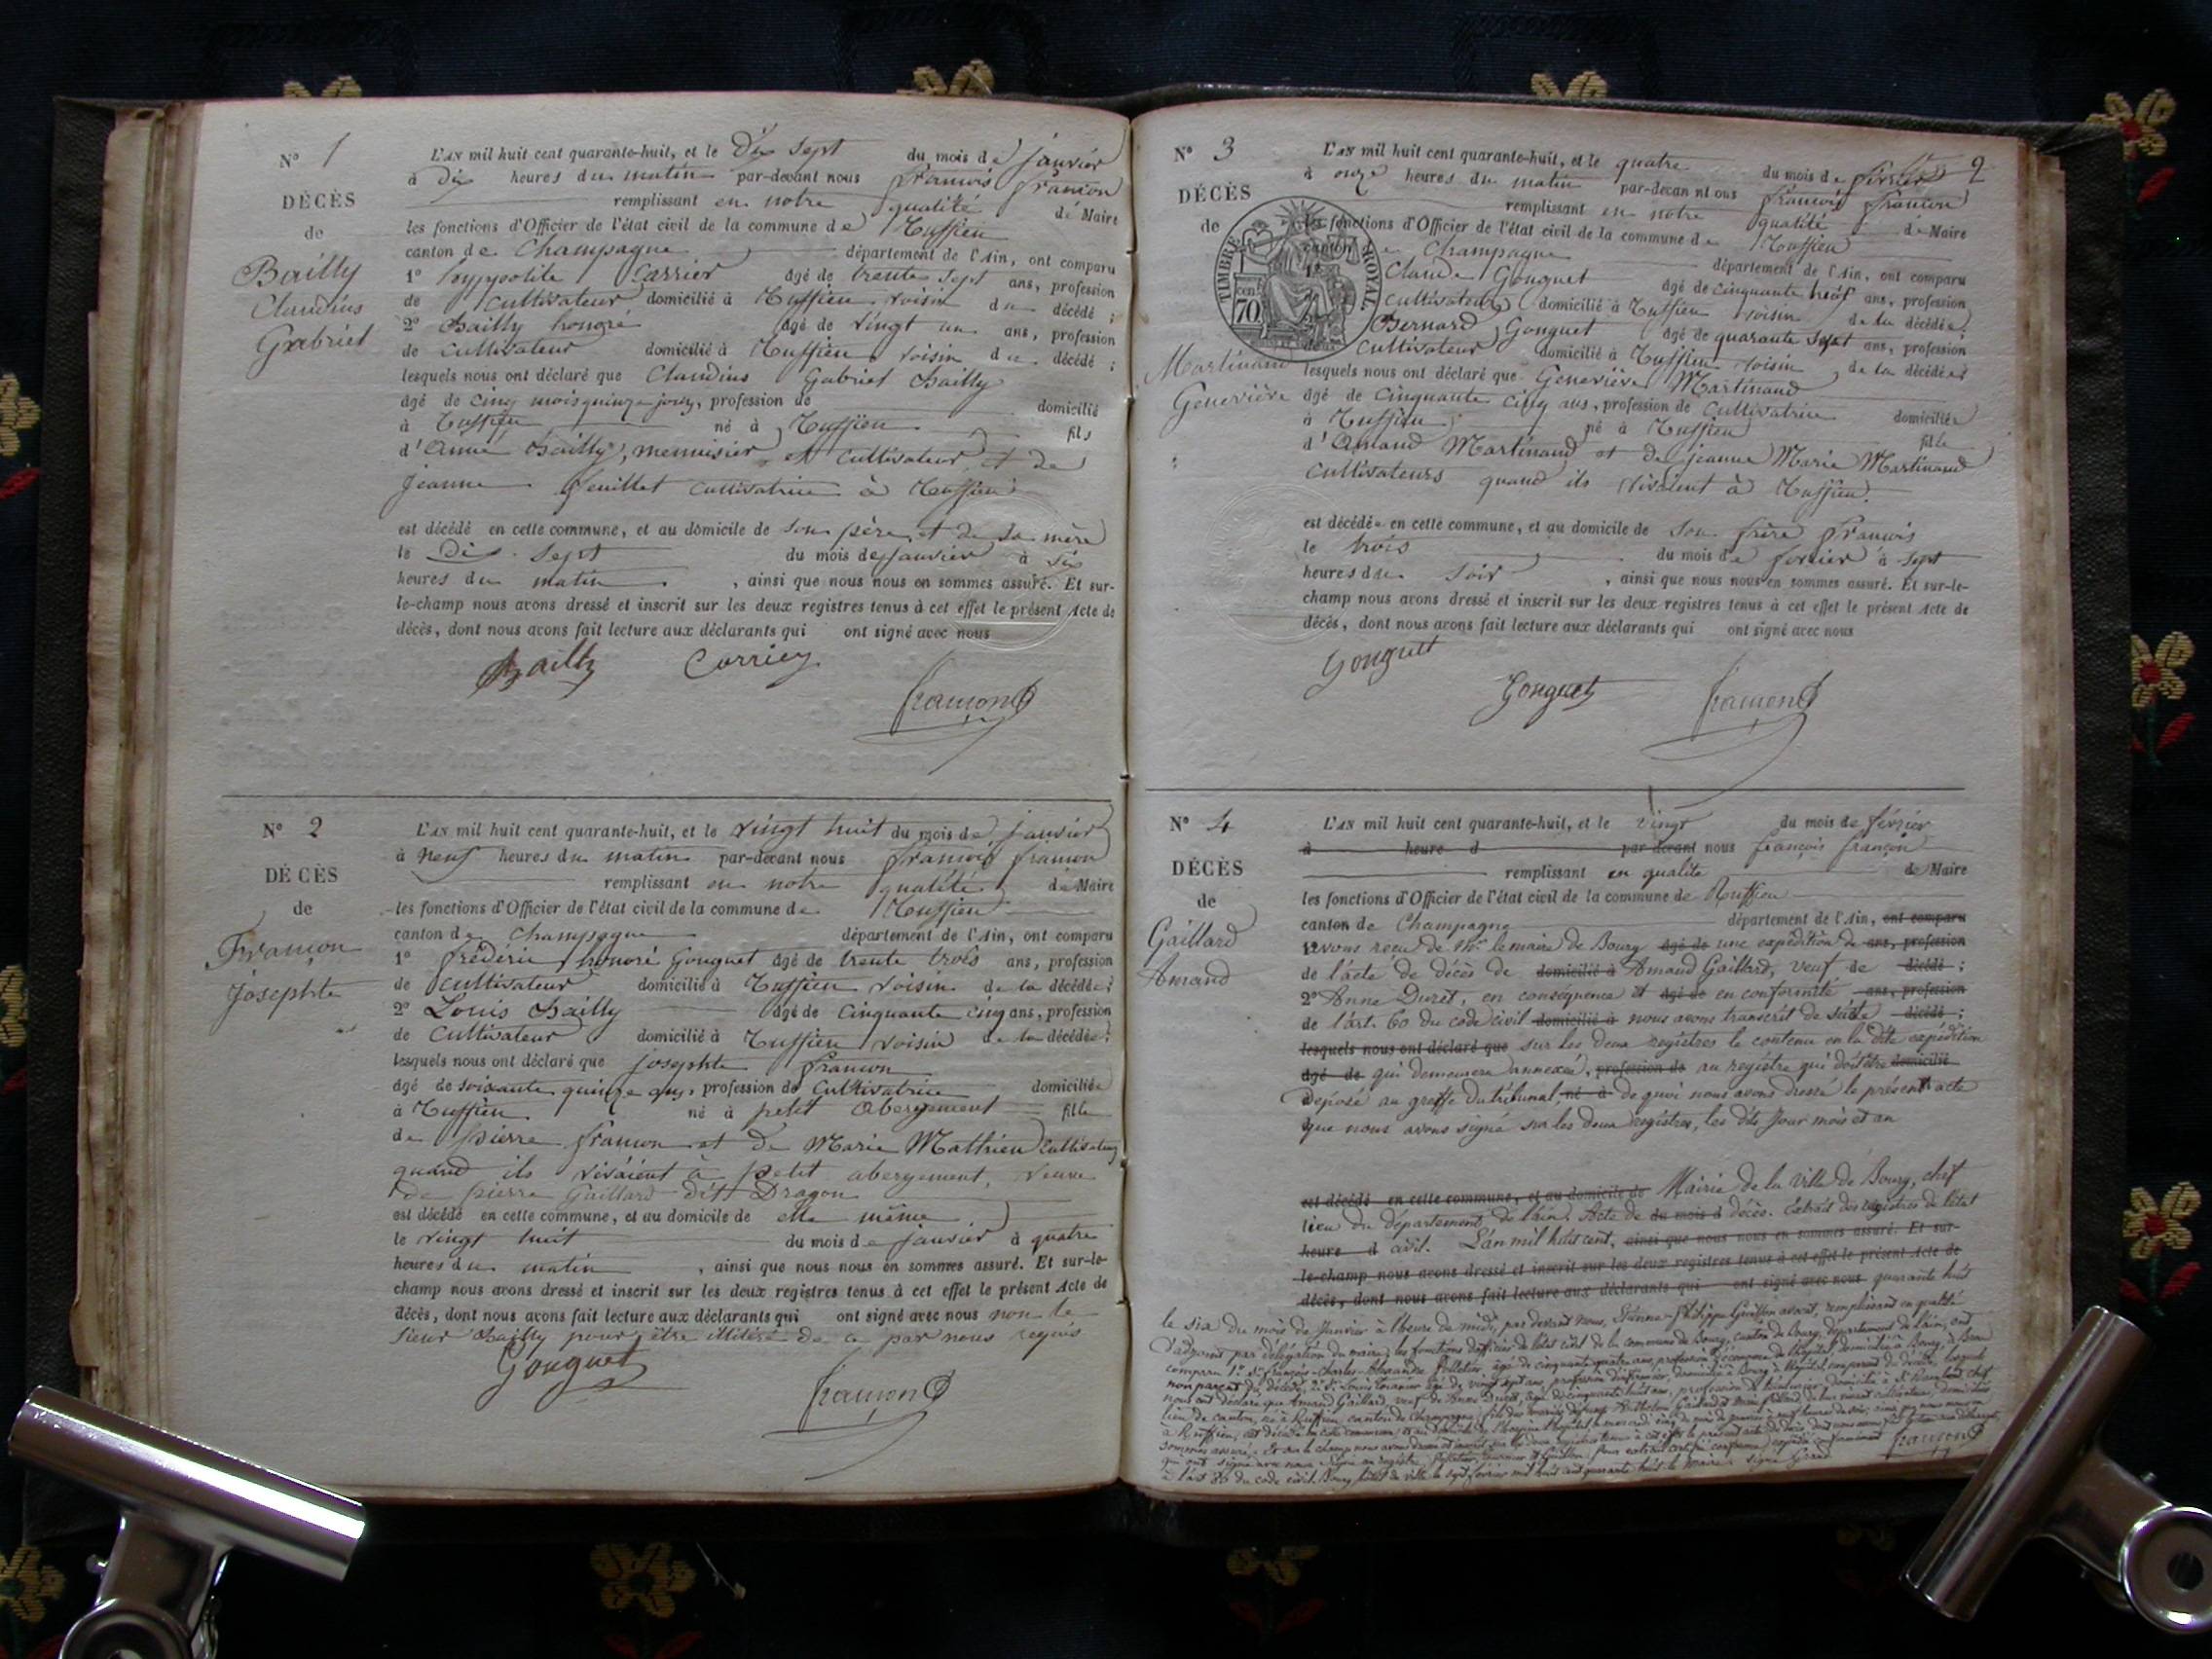 N° 1
DÉCÈS
de
Bailly
Claudius
Gabriel
L'AN mil huit cent quarante-huit, et le Dix Sept du mois de janvier
à Dix heures du matin par-devant nous françois françon
remplissant en notre qualité de Maire
les fonctions d'Officier de l'état civil de la commune de Ruffieu
canton de Champagne département de l'Ain, ont comparu
1° hyppolite Carrier âgé de trente sept ans, profession
de Cultivateur domicilié à Ruffieu voisin du décédé ;
2° Bailly honoré âgé de vingt un ans, profession
de cultivateur domicilié à Ruffieu voisin du décédé ;
lesquels nous ont déclaré que Claudius Gabriel Bailly
âgé de cinq mois quinze jours, profession de domicilié
à Ruffieu né à Ruffieu fils
d' Bailly, menuisier et cultivateur et de
jeanne feuillet cultivatrice à Ruffieu
est décédé en cette commune, et au domicile de son père et de sa mère
le Dix-Sept du mois de janvier à Six
heures du matin , ainsi que nous nous en sommes assuré. Et sur-
le-champ nous avons dressé et inscrit sur les deux registres tenus à cet effet le présent Acte de
décès, dont nous avons fait lecture aux déclarants qui ont signé avec nous
Bailly Carrier
françon
N° 2
DÉCÈS
de
Françon
Josephte
L'AN mil huit cent quarante-huit, et le vingt huit du mois de janvier
à neuf heures du matin par-devant nous françois françon
remplissant en notre qualité de Maire
les fonctions d'Officier de l'état civil de la commune de Ruffieu
canton de Champagne département de l'Ain, ont comparu
1° frédéric honoré Gonguet âgé de trente trois ans, profession
de cultivateur domicilié à Ruffieu voisin de la décédée ;
2° Louis Bailly âgé de Cinquante cinq ans, profession
de Cultivateur domicilié à Ruffieu voisin de la décédée ;
lesquels nous ont déclaré que josephte françon
âgé de soixante quinze ans, profession de Cultivatrice domiciliée
à Ruffieu né à petit Abergement fille
de pierre françon et de Marie Mathieu Cultivateurs
quand ils vivaient à petit abergement, veuve
de pierre Gaillard dit Dragon
est décédé en cette commune, et au domicile de elle même
le vingt huit du mois de janvier à quatre
heures du matin , ainsi que nous nous en sommes assuré. Et sur-le-
champ nous avons dressé et inscrit sur les deux registres tenus à cet effet le présent Acte de
décès, dont nous avons fait lecture aux déclarants qui ont signé avec nous non le
sieur Bailly pour être illitéré de ce par nous requis
Gonguet
françon
2
N° 3
DÉCÈS
de
Martinand
Geneviève
TIMBRE ROYAL
70
L'AN mil huit cent quarante-huit, et le quatre du mois de février
à onze heures du matin par-devan nt ous françois françon
remplissant en notre qualité de Maire
les fonctions d'Officier de l'état civil de la commune de Ruffieu
canton de Champagne département de l'Ain, ont comparu
Claude Gonguet âgé de cinquante neuf ans, profession
cultivateur domicilié à Ruffieu voisin de la décédée ;
Bernard Gonguet âgé de quarante sept ans, profession
Cultivateur domicilié à Ruffieu voisin de la décédée ;
lesquels nous ont déclaré que Geneviève Martinand
âgé de cinquante cinq ans, profession de cultivatrice domiciliée
à Ruffieu né à Ruffieu fille
d'Amand Martinand et de jeanne Marie Martinand
cultivateurs quand ils vivaient à Ruffieu.
est décédée en cette commune, et au domicile de son frère françois
le trois du mois de fevrier à sept
heures du soir , ainsi que nous nous en sommes assuré. Et sur-le-
champ nous avons dressé et inscrit sur les deux registres tenus à cet effet le présent Acte de
décès, dont nous avons fait lecture aux déclarants qui ont signé avec nous
Gonguet
Gonguet françon
N° 4
DÉCÈS
de
Gaillard
Amand
L'AN mil huit cent quarante-huit, et le vingt du mois de février
à heure d par-devant nous françois françon
remplissant en qualité de Maire
les fonctions d'Officier de l'état civil de la commune de Ruffieu
canton de Champagne département de l'Ain, ont comparu
avons reçu de Mr le maire de Bourg âgé de une expédition de ans, profession
de l'acte de décès de domicilié à Amand Gaillard, veuf de décédé ;
2° Anne Duret, en conséquence et âgé de en conformité ans, profession
de l'art. 60 du code civil domicilié à nous avons transcrit de suite décédé ;
lesquels nous ont déclaré que sur les deux registres le contenu en la dite expédition
âgé de qui demeurera annexée, profession de au registre qui doit être domicilié
déposé au greffe du tribunal, né à de quoi nous avons dressé le présent acte
que nous avons signé sur les deux registres, les dits jour mois et an
est décédé en cette commune, et au domicile de Mairie de la ville de Bourg, chef
lieu du département de l'ain. Acte de du mois d décès. Extrait des registres de l'état
heure d civil. L'an mil huit cent, ainsi que nous nous en sommes assuré. Et sur-
le-champ nous avons dressé et inscrit sur les deux registres tenus à cet effet le présent Acte de
décès, dont nous avons fait lecture aux déclarants qui ont signé avec nous quarante huit
le six du mois de Janvier à l'heure de midi, par devant nous, Etienne-Philippe avocat, remplissant en qualité
d'adjoint par délégation du maire, les fonctions d'officier de l'état civil de la commune de Bourg, canton de Bourg, département de l'ain, ont
comparu 1° Sr françois-Charles-Alexandre Pelletier, âgé de cinquante quatre ans, profession d'économe de l'hôpital, domicilié à Bourg
non parent du décédé, 2° Sr Louis âgé de vingt sept ans, profession d'infirmier, domicilié à Bourg à l'hôpital
nous ont déclaré que Amand Gaillard, veuf de Anne Duret, âgé de cinquante huit ans, profession de domicilié à St Rambert chef
lieu de canton, né à Ruffieu canton de Champagne, fils des mariés
à Ruffieu, est décédé en cette commune
sommes assuré. Et sur le champ nous avons dressé et inscrit sur les deux registres tenus à cet effet le présent acte de décès
qui ont signé avec nous
à l'art 80 du code civil. Bourg hôtel de ville le sept février mil huit cent quarante huit le maire signé
françon